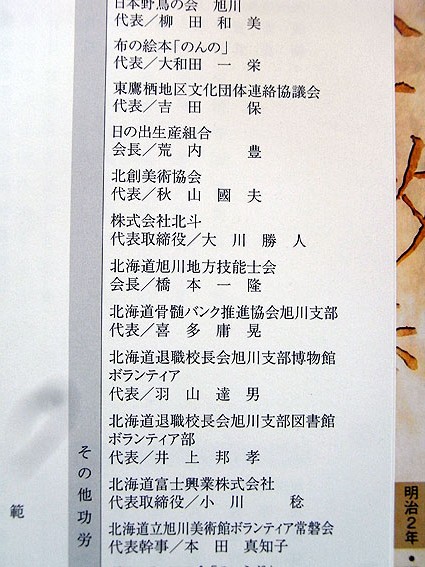 日本野鳥の会　旭川
代表／柳　田　和　美
布の絵本「のんの」
代表／大和田　一　栄
東鷹栖地区文化団体連絡協議会
代表／吉　田　　　保
日の出生産組合
会長／荒　内　　　豊
北創美術協会
代表／秋　山　國　夫
株式会社北斗
代表取締役／大　川　勝　人
北海道旭川地方技能士会
会長／橋　本　一　隆
北海道骨髄バンク推進協会旭川支部
代表／喜　多　庸　晃
北海道退職校長会旭川支部博物館
ボランティア
代表／羽　山　達　男
北海道退職校長会旭川支部図書館
ボランティア部
代表／井　上　邦　孝
北海道富士興業株式会社
代表取締役／小　川　　　稔
北海道立旭川美術館ボランティア常磐会
代表幹事／本　田　真知子
その他功労
範
明治2年・